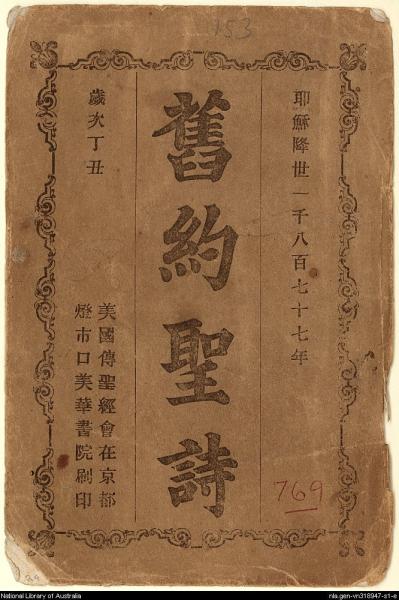 153
耶穌降世一千八百七十七年
舊約聖詩
歲次丁丑
美國傳聖經會在京都
燈市口美華書院刷印
769
National Library of Australia
nla.gen-vn318947-s1-e